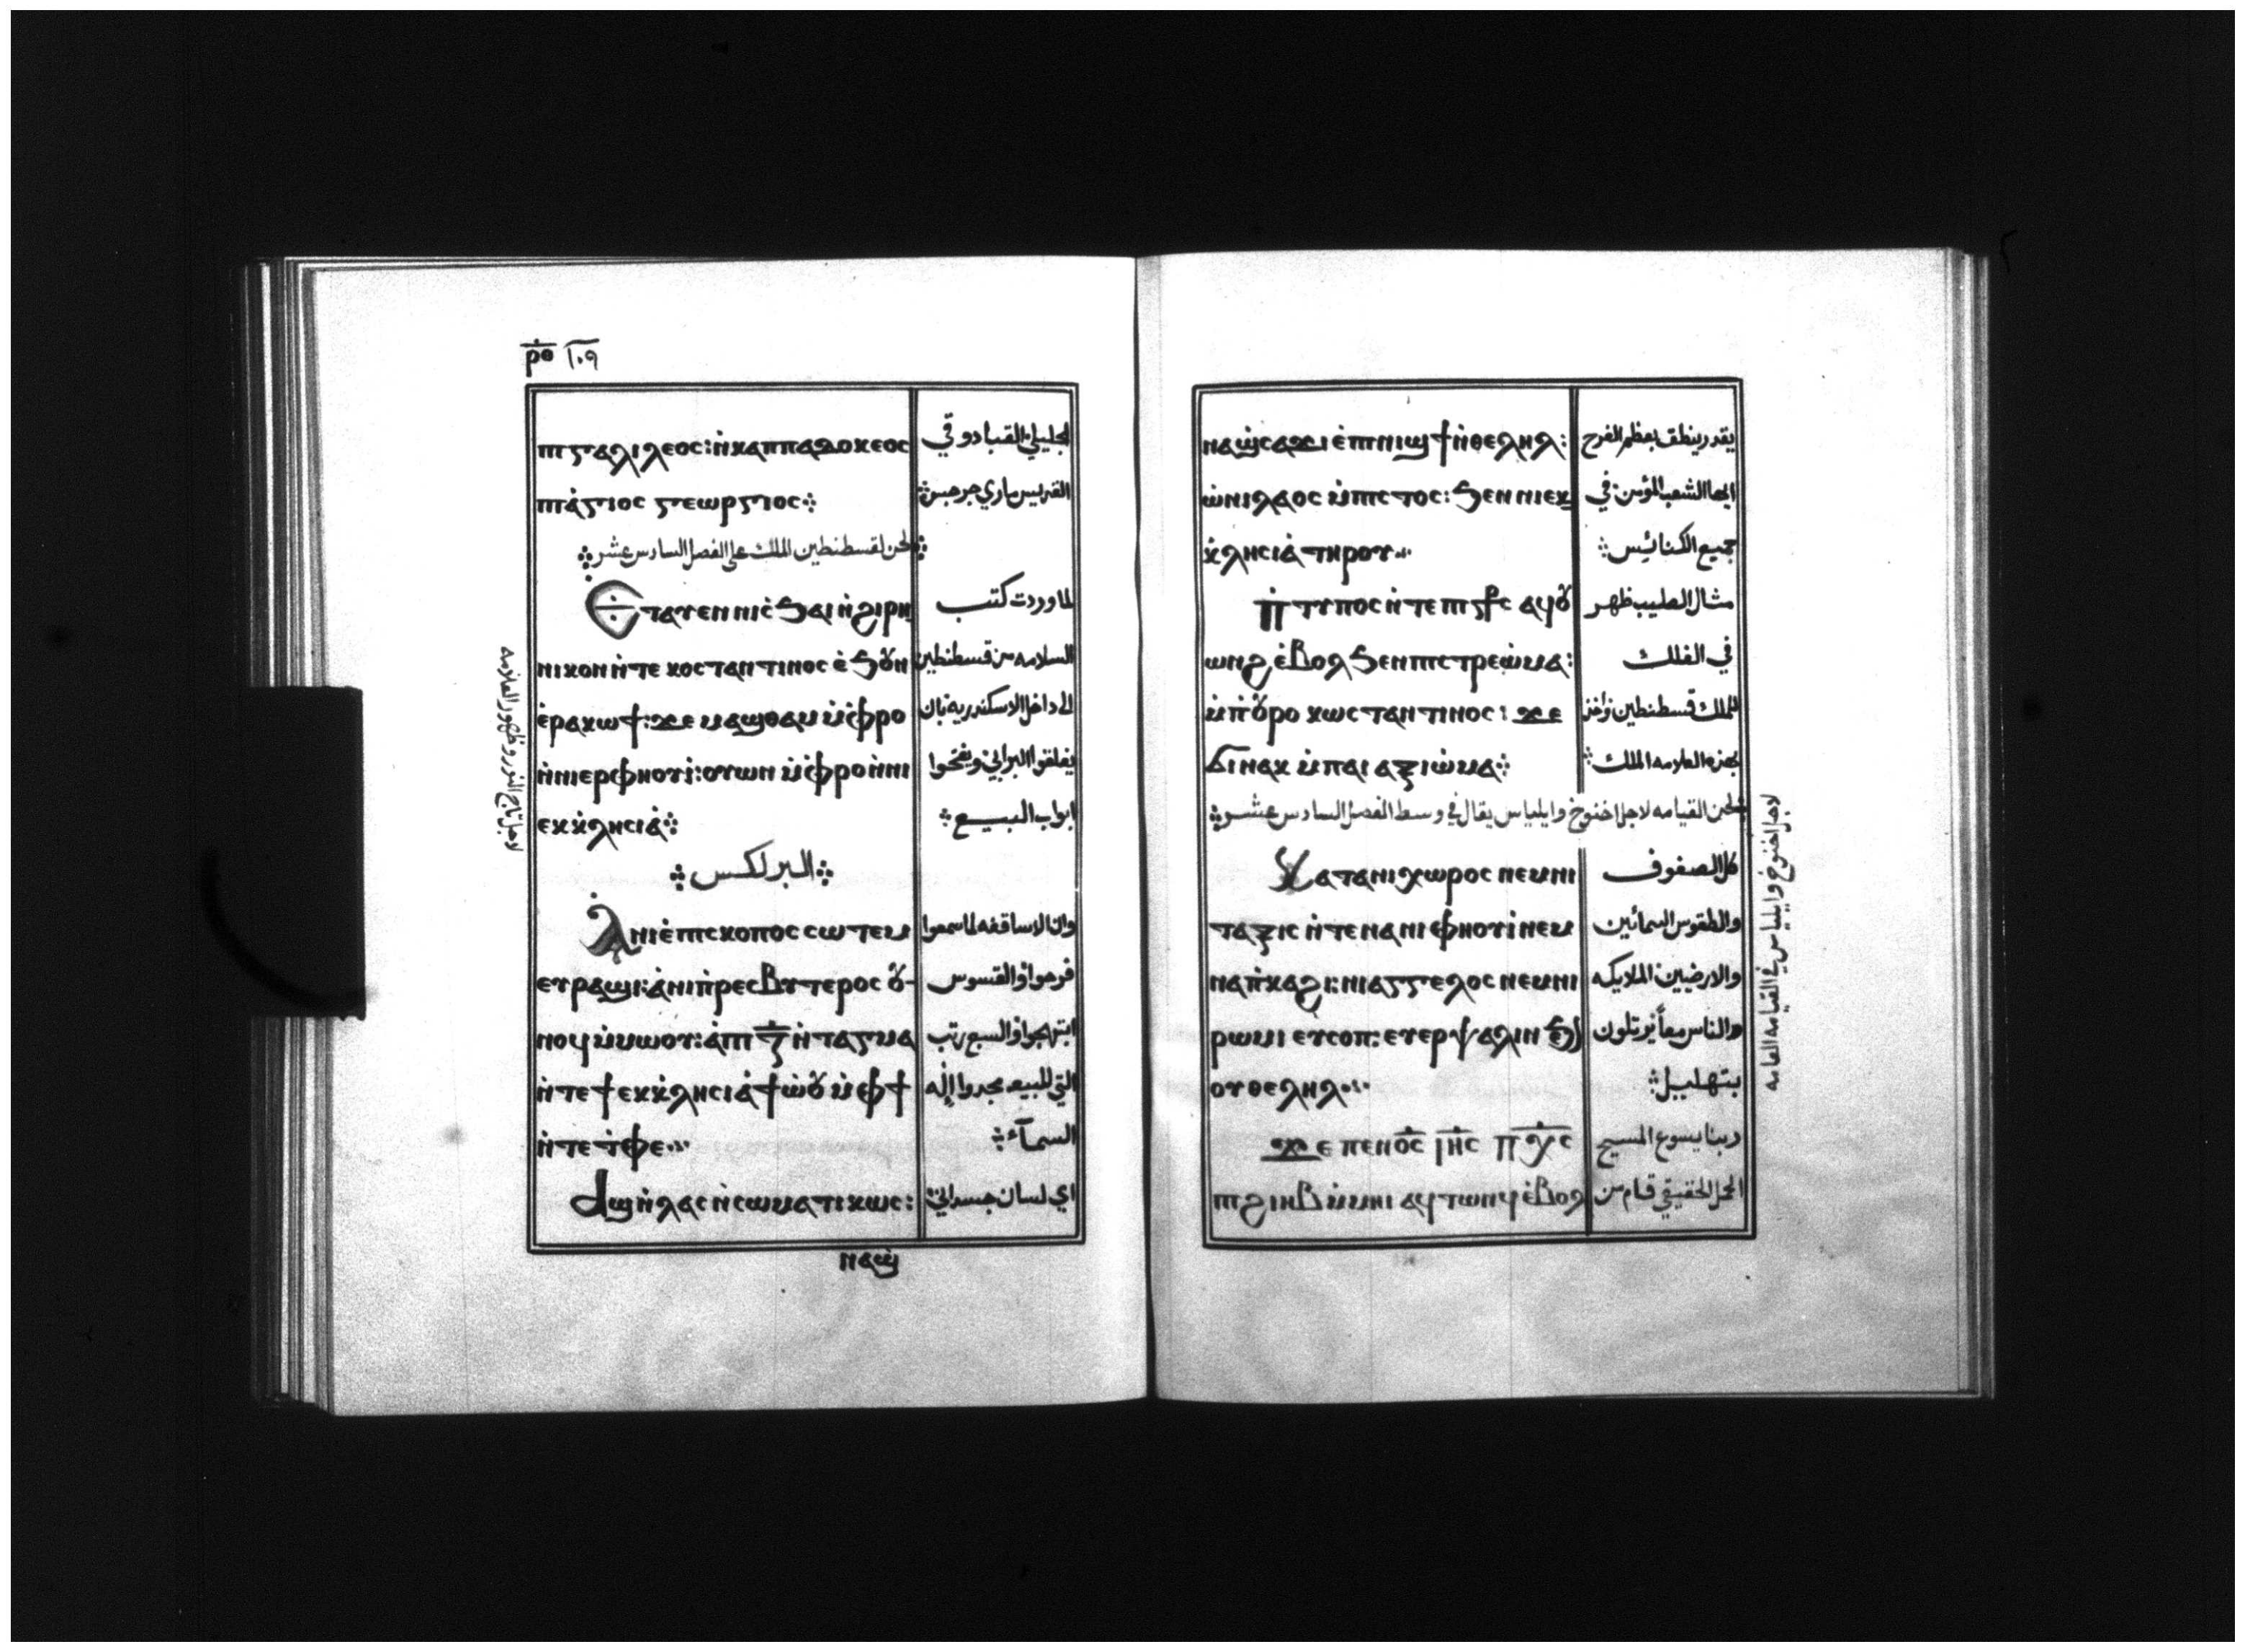 ⲣⲑ ١٠٩
ⲡⲓⲅⲁⲗⲓⲗⲉⲟⲥ: ⲛ̀ⲕⲁⲡⲡⲁⲇⲟⲕⲉⲟⲥ الجليلي القبادوقي
ⲡⲓⲁ̀ⲅⲓⲟⲥ ⲅⲉⲱⲣⲅⲓⲟⲥ⁘ القديس ماري جرجس⁘
⁘ لحن لقسطنطين الملك على الفصل السادس عشر ⁘
Ⲉ̀ⲧⲁⲩⲉⲛ ⲛⲓⲥ̀ϧⲁⲓ ⲛ̀ϩⲓⲣⲏ لما وردت كتب
ⲛⲓⲕⲟⲛ ⲛ̀ⲧⲉ ⲕⲟⲥⲧⲁⲛⲧⲓⲛⲟⲥ ⲉ̀ϧⲟⲩⲛ السلامه من قسطنطين
ⲉ̀ⲣⲁⲕⲱϯ: ϫⲉ ⲙⲁϣⲑⲁⲙ ⲙ̀ⲫⲣⲟ الى داخل الاسكندريه بان
ⲛ̀ⲛⲓⲉⲣⲫⲏⲟⲩⲓ̀: ⲟⲩⲱⲛ ⲙ̀ⲫⲣⲟ ⲛ̀ⲛⲓ يغلقوا البرابي ويفتحوا
ⲉⲕⲕ̀ⲗⲏⲥⲓⲁ̀⁘ ابواب البيع⁘
⁘ البرلكس ⁘
Ⲁ̀ⲛⲓⲉ̀ⲡⲓⲥⲕⲟⲡⲟⲥ ⲥⲱⲧⲉⲙ وان الاساقفه لما سمعوا
ⲉⲩⲣⲁϣⲓ: ⲁ̀ⲛⲓⲡ̀ⲣⲉⲥⲃⲩⲧⲉⲣⲟⲥ ⲟⲩ- فرحوا والقسوس
ⲛⲟϥ ⲙ̀ⲙⲱⲟⲩ: ⲁ̀ⲡⲓⲍ̅ ⲛ̀ⲧⲁⲅⲙⲁ ابتهجوا والسبع رتب
ⲛ̀ⲧⲉ ϯⲉⲕⲕ̀ⲗⲏⲥⲓⲁ̀ ϯⲱ̀ⲟⲩ ⲙ̀ⲫϯ التي للبيعه مجدوا إله
ⲛ̀ⲧⲉ ⲧ̀ⲫⲉ السمآء⁘
Ⲁϣ ⲛ̀ⲗⲁⲥ ⲛ̀ⲥⲱⲙⲁⲧⲓⲕⲱⲥ: اي لسان جسداني
ⲛⲁϣ
لاجل تاج النور وظهور العلامه
ⲛⲁϣⲥⲁϫⲓ ⲉ̀ⲡⲓⲛⲓϣϯ ⲛ̀ⲑⲉⲗⲏⲗ: يقدر ينطق بعظم الفرح
ⲱ̀ⲛⲓⲗⲁⲟⲥ ⲙ̀ⲡⲓⲥⲧⲟⲥ: ϧⲉⲛ ⲛⲓⲉⲕ ايها الشعب المؤمن في
ⲕ̀ⲗⲏⲥⲓⲁ̀ ⲧⲏⲣⲟⲩ جميع الكنائيس⁘
ⲡ̀ⲧⲩⲡⲟⲥ ⲛ̀ⲧⲉ ⲡⲓⲥⳁⲥ ⲁϥⲟⲩ مثال الصليب ظهر
ⲱⲛϩ ⲉ̀ⲃⲟⲗ ϧⲉⲛ ⲡⲓⲥⲧⲣⲉⲱ̀ⲙⲁ: في الفلك
ⲙ̀ⲡⲟⲩⲣⲟ ⲕⲱⲥⲧⲁⲛⲧⲓⲛⲟⲥ: ϫⲉ للملك قسطنطين وأخذ
ϭⲓ ⲛⲁⲕ ⲙ̀ⲡⲁⲓ ⲁⲝⲓⲱ̀ⲙⲁ⁘ بهذه العلامه الملك⁘
⁘ لحن القيامه لاجل اخنوخ وايلياس يقال في وسط الفصل السادس عشر ⁘
Ⲕⲁⲧⲁⲛⲓⲭⲱⲣⲟⲥ ⲛⲉⲙ ⲛⲓ كل الصفوف
ⲧⲁⲝⲓⲥ ⲛ̀ⲧⲉ ⲛⲁⲛⲓⲫⲏⲟⲩⲓ̀ ⲛⲉⲙ والطقوس السمائيين
ⲛⲁⲡ̀ⲕⲁϩⲓ: ⲛⲓⲁⲅⲅⲉⲗⲟⲥ ⲛⲉⲙ ⲛⲓ والارضيين الملايكه
ⲣⲱⲙⲓ ⲉⲩⲥⲟⲡ: ⲉⲩⲉⲣⲯⲁⲗⲓⲛ ϧⲉⲛ والناس معاً يرتلون
ⲟⲩⲑⲉⲗⲏⲗ بتهليل⁘
ϫⲉ ⲡⲉⲛⲟ̅ⲥ̅ ⲓⲏ̅ⲥ̅ ⲡⲭ̅ⲥ̅ ربنا يسوع المسيح
ⲡⲓϩⲓⲏⲃ ⲙ̀ⲙⲏⲓ ⲁϥⲧⲱⲛϥ ⲉ̀ⲃⲟⲗ الحمل الحقيقي قام من
لاجل اخنوخ وايلياس في القيامه العامه